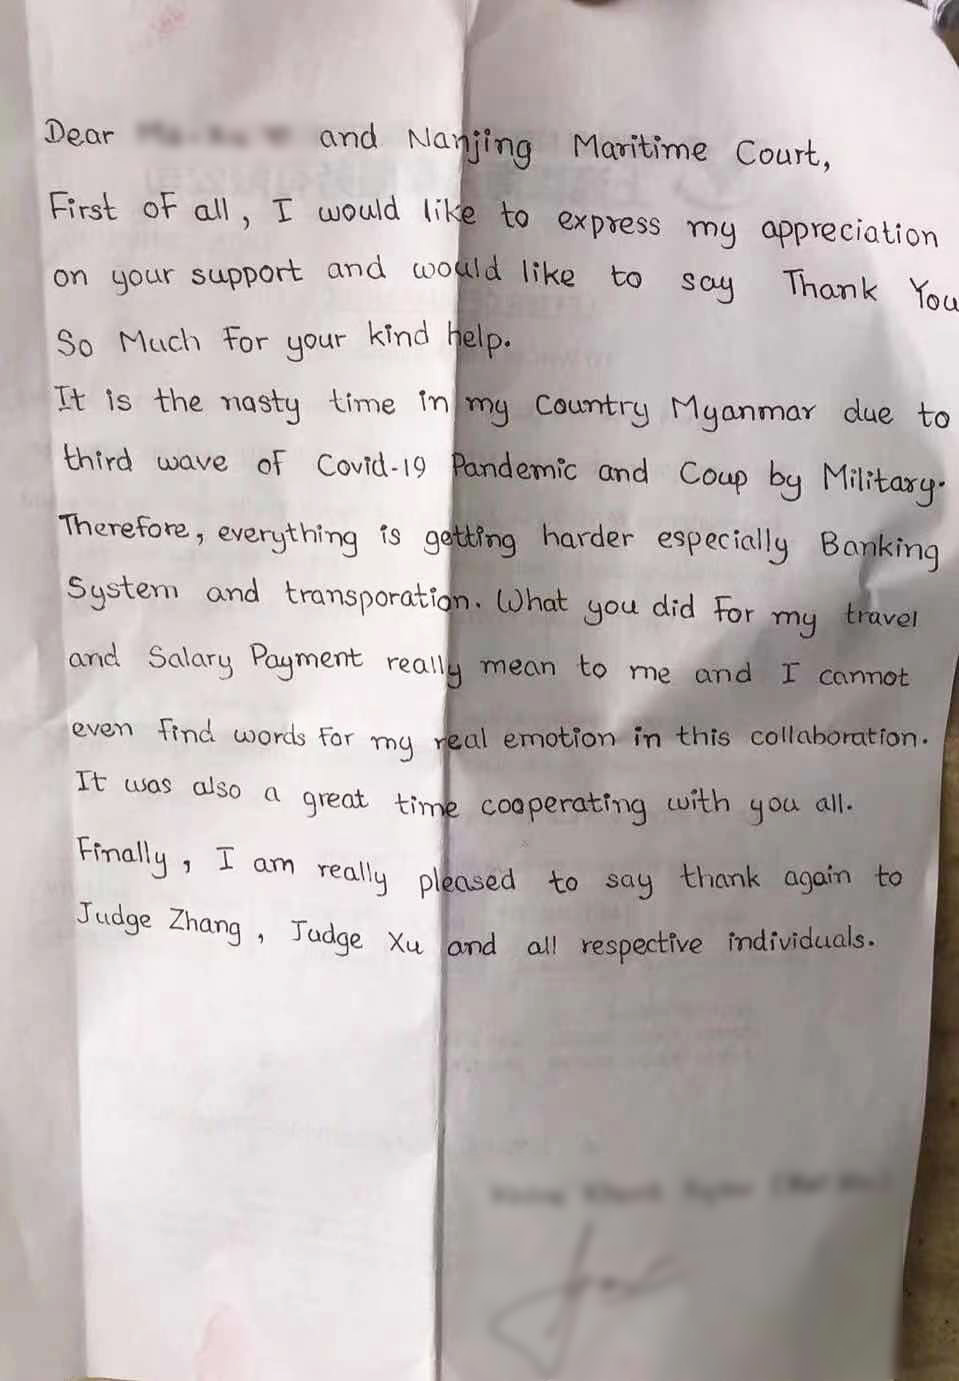 Dear and Nanjing Maritime Court,
First of all, I would like to express my appreciation
on your support and would like to say Thank You
So Much for your kind help.
It is the nasty time in my Country Myanmar due to
third wave of Covid-19 Pandemic and Coup by Military.
Therefore, everything is getting harder especially Banking
System and transporation. What you did for my travel
and Salary Payment really mean to me and I cannot
even find words for my real emotion in this collaboration.
It was also a great time cooperating with you all.
Finally, I am really pleased to say thank again to
Judge Zhang, Judge Xu and all respective individuals.